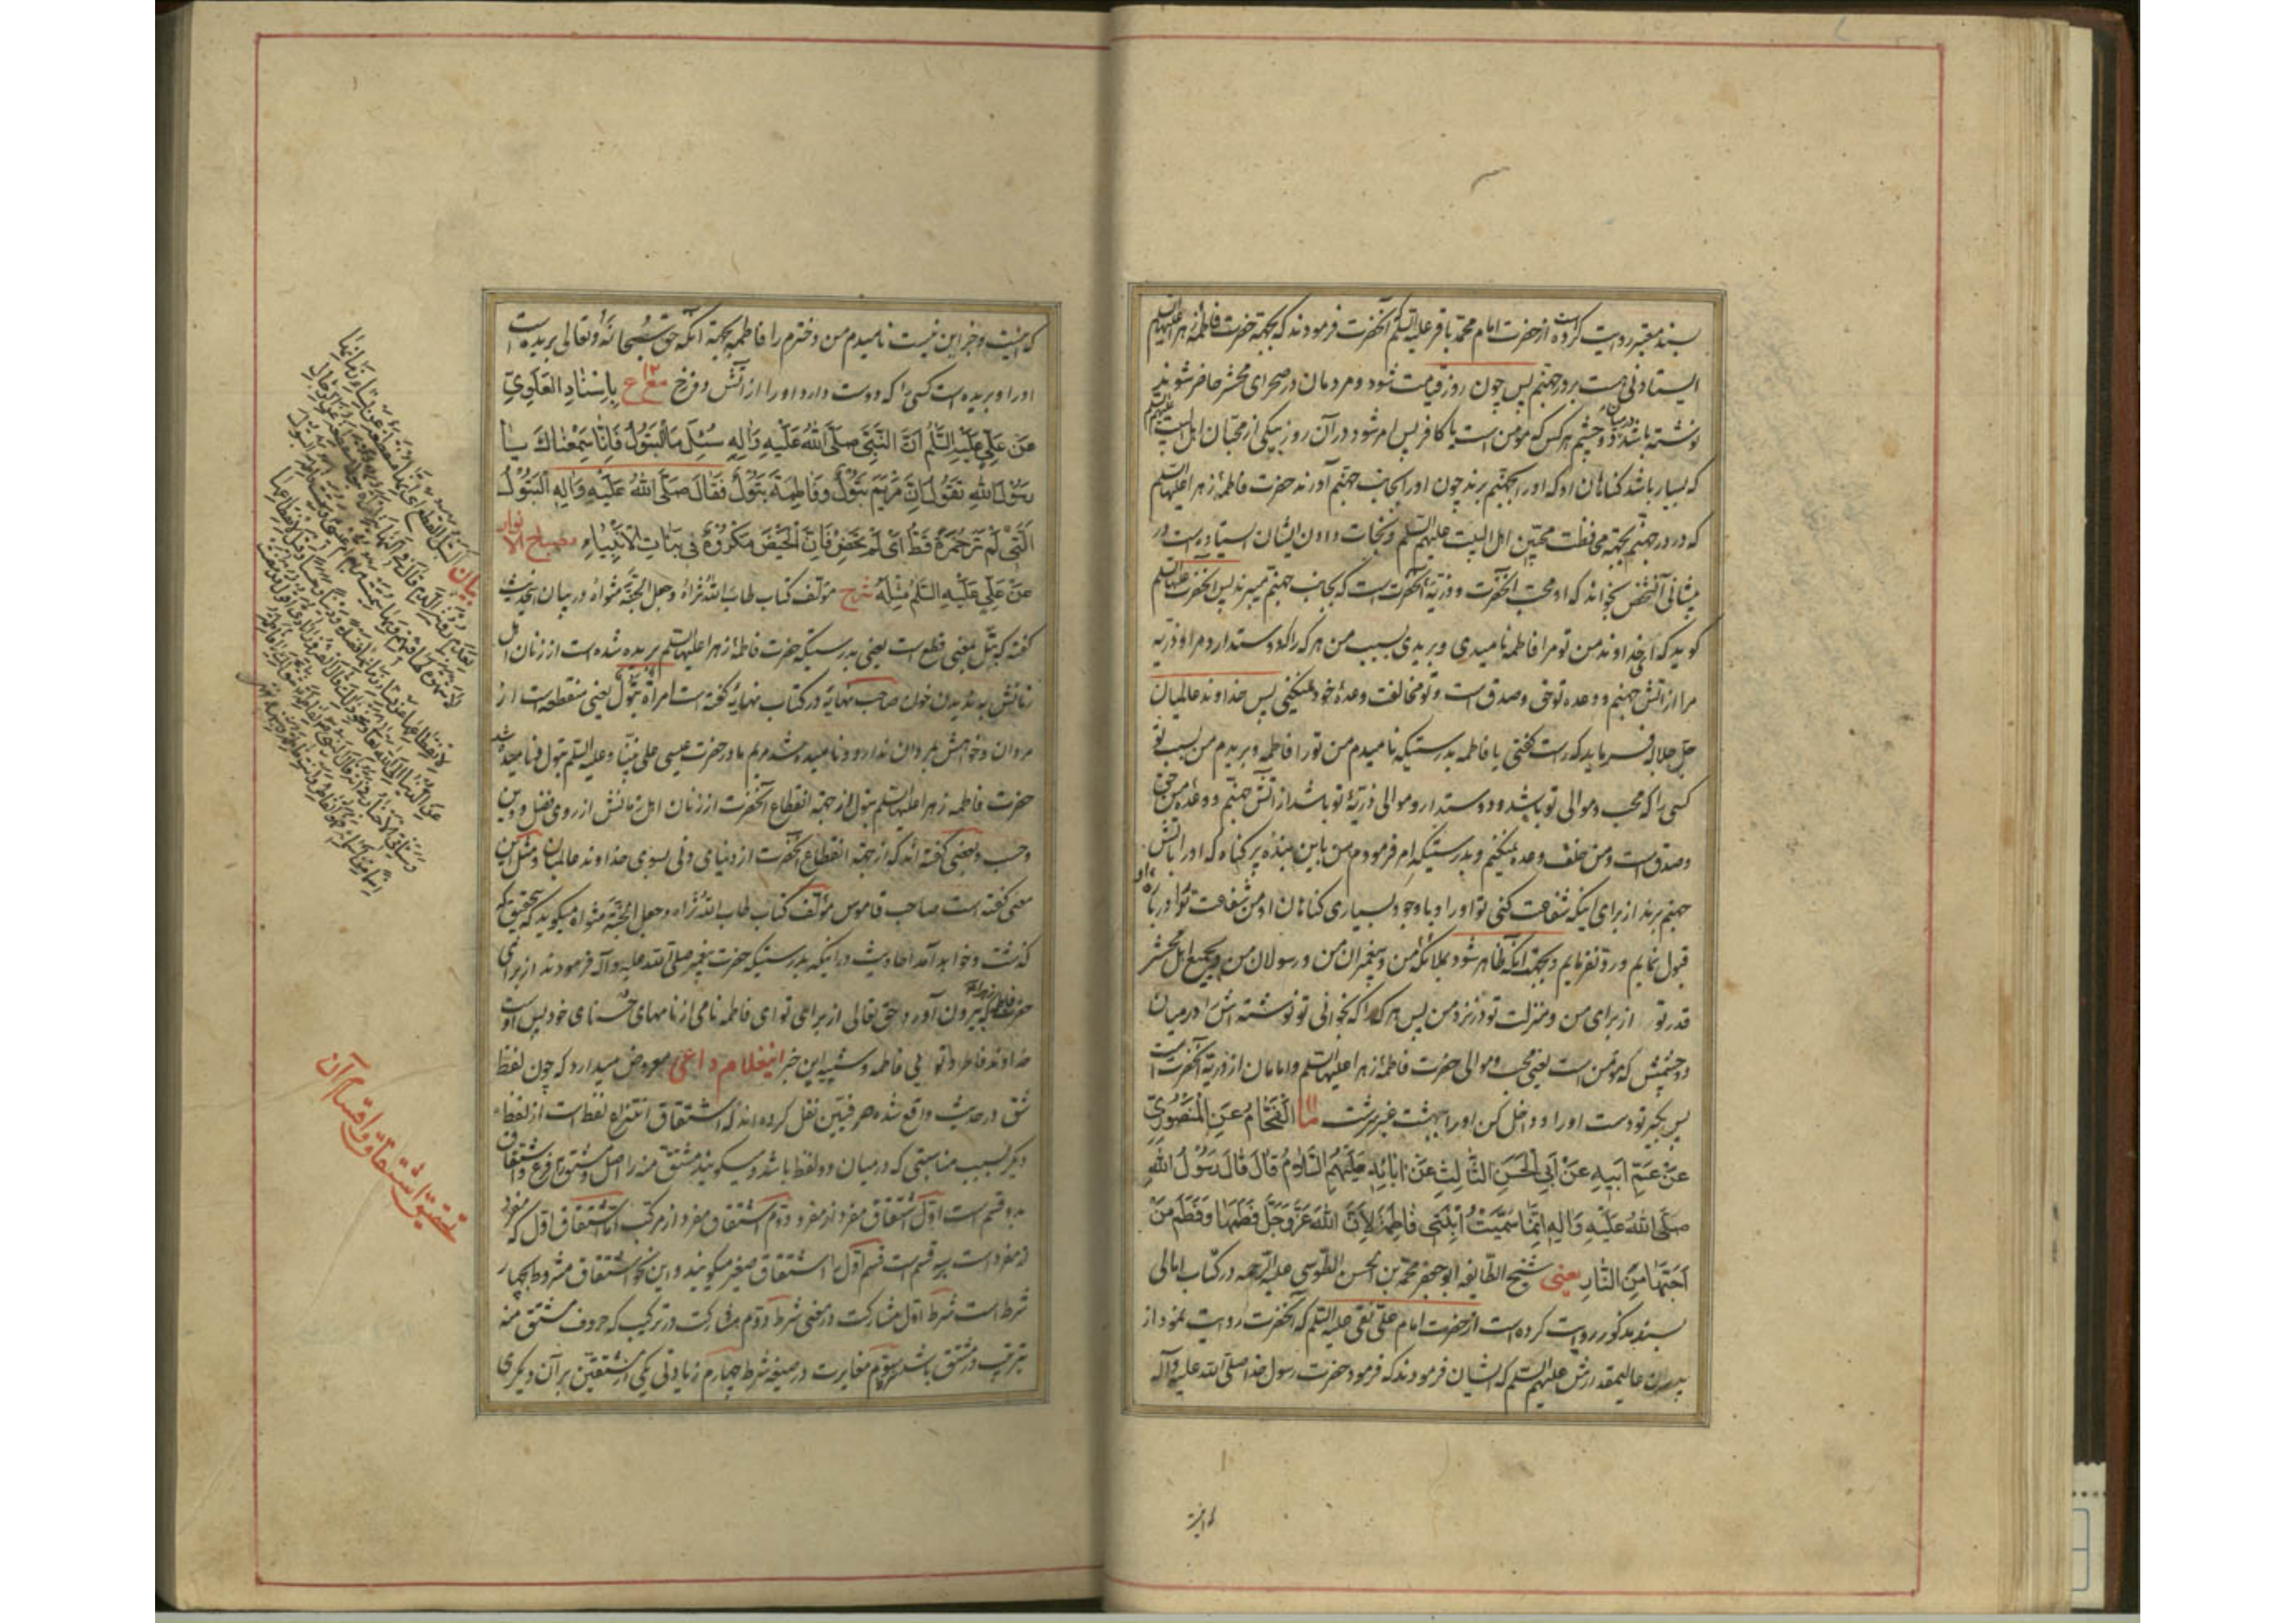 بسند معتبر روایت کرده است از حضرت امام محمد باقر علیه السلم آنحضرت فرمودند که بجهة حضرت فاطمه زهرا علیها السلم
ایستادنی هست بر در جهنم پس چون روز قیامت شود و مردمان در صحرای محشر حاضر شوند
نوشته باشد در میان دو چشم هر کس که مومن است یا کافر پس امر شود در آن روز بیکی از محبان اهل البیت علیهم السلم
که بسیار باشد کناهان او که او را بجهنم برند چون او را بجانب جهنم آورند حضرت فاطمه زهرا علیها السلم
که در در جهنم بجهة محافظت محبین اهل البیت علیهم السلم و نجات دادن ایشان ایستاده است در
پیشانی آنشخص بخواند که او محب آنحضرت و ذریّة آنحضرت است که بجانب جهنم میبرند پس آنحضرت علیها السلم
کوید که ای خداوند من تو مرا فاطمه نامیدی و بریدی بسبب من هر که را که دوستدارد مرا و ذریه
مرا از آتش جهنم و وعده تو حق و صدق است و تو مخالفت وعدهٔ خود نمیکنی پس خداوند عالمیان
جل جلاله فرماید که راست کفتی یا فاطمه بدرستیکه نامیدم من تو را فاطمه و بریدم من بسبب تو
کسی را که محب و موالی تو باشد و دوستدار و موالی ذریّهٔ تو باشد از آتش جهنم و وعدهٔ من حق
و صدق است و من خلف وعده نمیکنم و بدرستیکه امر فرمودم من باین بندهٔ پر کناه که او را بآتش
جهنم برند از برای اینکه شفاعت کنی تو او را و با وجود بسیاری کناهان او من شفاعت تو را در بارهٔ او
قبول نمایم و رد نفرمایم و بجهة آنکه ظاهر شود بملائکه من و پیغمبران من و رسولان من و بجمیع اهل محشر
قدر تو از برای من و منزلت تو در نزد من پس هر که را که بخوانی تو نوشته اش را در میان
دو چشمش که مؤمن است یعنی محب و موالی حضرت فاطمه زهرا علیها السلم و امامان از ذریّة آنحضرت است
پس بکیر تو دست او را و داخل کن او را ببهشت عنبر سرشت ما الفَحّام عَنِ المَنْصُورِيّ
عَنْ عَمِّ اَبيهِ عَنْ اَبِي الْحَسَنِ الثّالِثِ عَنْ اٰبائِهِ عَلَيْهِمُ السَّلامُ قالَ قالَ رَسُولُ اللهِ
صَلَّى اللهُ عَلَيْهِ وَاٰلِهِ اِنَّما سَمَّيْتُ اِبْنَتي فاطِمَةَ لِاَنَّ اللهَ عَزَّ وَجَلَّ فَطَمَها وَفَطَمَ مَنْ
اَحَبَّها مِنَ النّارِ یعنی شیخ الطایفه ابو جعفر محمد بن الحسن الطوسی علیه الرحمه در کتاب امالی
بسند مذکور روایت کرده است از حضرت امام علی نقی علیه السلم که آنحضرت روایت نمود از
پدران عالیمقدارش علیهم السلم که ایشان فرمودند که فرمود حضرت رسول خدا صلی الله علیه وآله
که اینست
که اینست و جز این نیست نامیدم من دخترم را فاطمه بجهة آنکه حق سبحانه و تعالی بریده است
او را و بریده است کسی را که دوست دارد او را از آتش دوزخ ١٢ مع ع بِاِسْنادِ العَلَوِيّ
عَنْ عَلِيٍّ عَلَيْهِ السَّلَمُ اَنَّ النَّبِيَّ صَلَّى اللهُ عَلَيْهِ وَاٰلِهِ سُئِلَ مَا الْبَتُولُ فَاِنّا سَمِعْناكَ يا
رَسُولَ اللهِ تَقُولُ اِنَّ مَرْيَمَ بَتُولٌ وَفاطِمَةَ بَتُولٌ فَقالَ صَلَّى اللهُ عَلَيْهِ وَاٰلِهِ اَلْبَتُولُ
الَّتي لَمْ تَرَ حُمْرَةً قَطُّ اَيْ لَمْ تَحِضْ فَاِنَّ الْحَيْضَ مَكْرُوهٌ في بَناتِ الْاَنْبِياءِ مصباح الانوار
عَنْ عَلِيٍّ عَلَيْهِ السَّلَمُ مِثْلَهُ شرح مؤلف کتاب طاب الله ثراه وجعل الجنة مثواه در بیان اینحدیث
کفته که بتل بمعنی قطع است یعنی بدرستیکه حضرت فاطمه زهرا علیها السلم بریده شده است از زنان اهل
زمانش به ندیدن خون صاحب نهایه در کتاب نهایه کفته است امرأة بتول یعنی منقطعه است از
مردان و خواهش بمردان ندارد و نامیده شد مریم مادر حضرت عیسی علی نبینا وعلیه السلم بتول و نامیده شد
حضرت فاطمه زهرا علیها السلم بتول از جهة انقطاع آنحضرت از زنان اهل زمانش از روی فضل و دین
و حسب و بعضی کفته اند که از جهة انقطاع آنحضرت از دنیای دنی بسوی خداوند عالمیان و مثل این
معنی کفته است صاحب قاموس مؤلف کتاب طاب الله ثراه وجعل الجنة مثواه میکوید که بتحقیق که
کذشت و خواهد آمد احادیث در اینکه بدرستیکه حضرت پیغمبر صلی الله علیه وآله فرمودند از برای
حضرت فاطمه زهرا که بیرون آورد حق تعالی از برای تو ای فاطمه نامی از نامهای حسنای خود پس اوست
خداوند فاطر و توئی فاطمه و شبیه این خبر اینغلام داعی معروض میدارد که چون لفظ
شق در حدیث واقع شده صرفیین نقل کرده اند که اشتقاق انتزاع لفظ است از لفظ
دیکر بسبب مناسبتی که در میان دو لفظ باشد و میکویند مشتق منه را اصل و مشتق را فرع و اشتقاق
بدو قسم است اول اشتقاق مفرد از مفرد دوم اشتقاق مفرد از مرکب اما اشتقاق اول که مفرد
از مفرد است سه قسم است قسم اول را اشتقاق صغیر میکویند و این نحو اشتقاق مشروط بچهار
شرط است شرط اول مشارکت در معنی شرط دوم مشارکت در ترکیب که حروف مشتق منه
بترتیب در مشتق باشد سوم مغایرت در صیغه شرط چهارم زیادتی یکی از مشتقین بر آن دیکری
بیان
تحقیق اشتقاق و اقسام آن